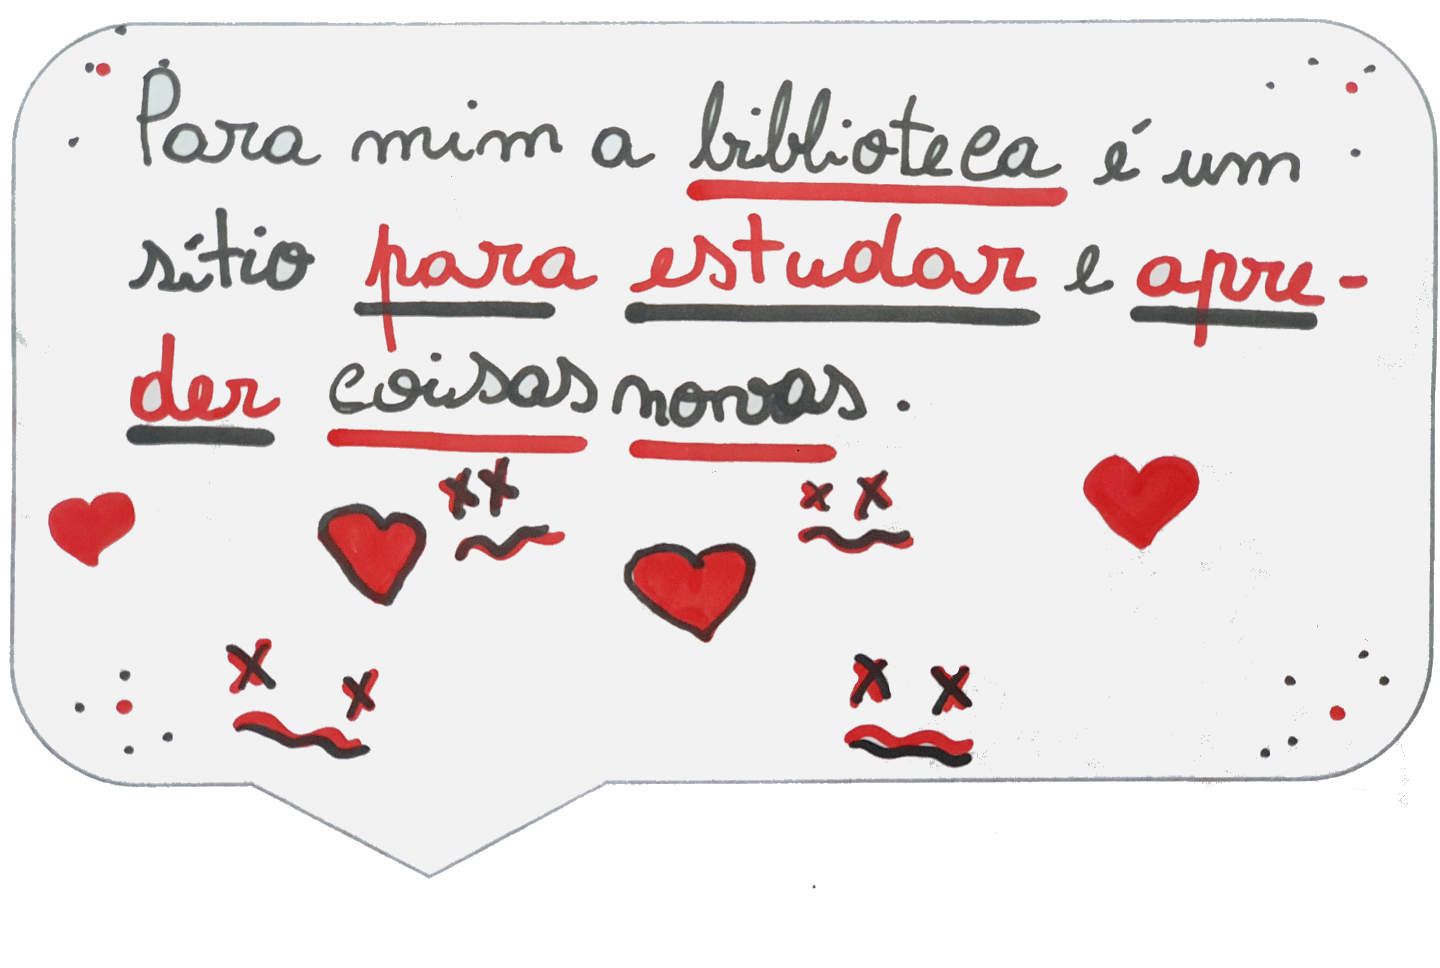 Para mim a biblioteca é um
sítio para estudar e apre-
der coisas novas.